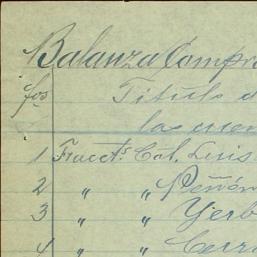 Balanza Compr
fos Titulo d
las cuen
1 Fracc<sup>ts</sup> Col. Luis
2 " " Peñón
3 " " Yerb
4 " " Cerr